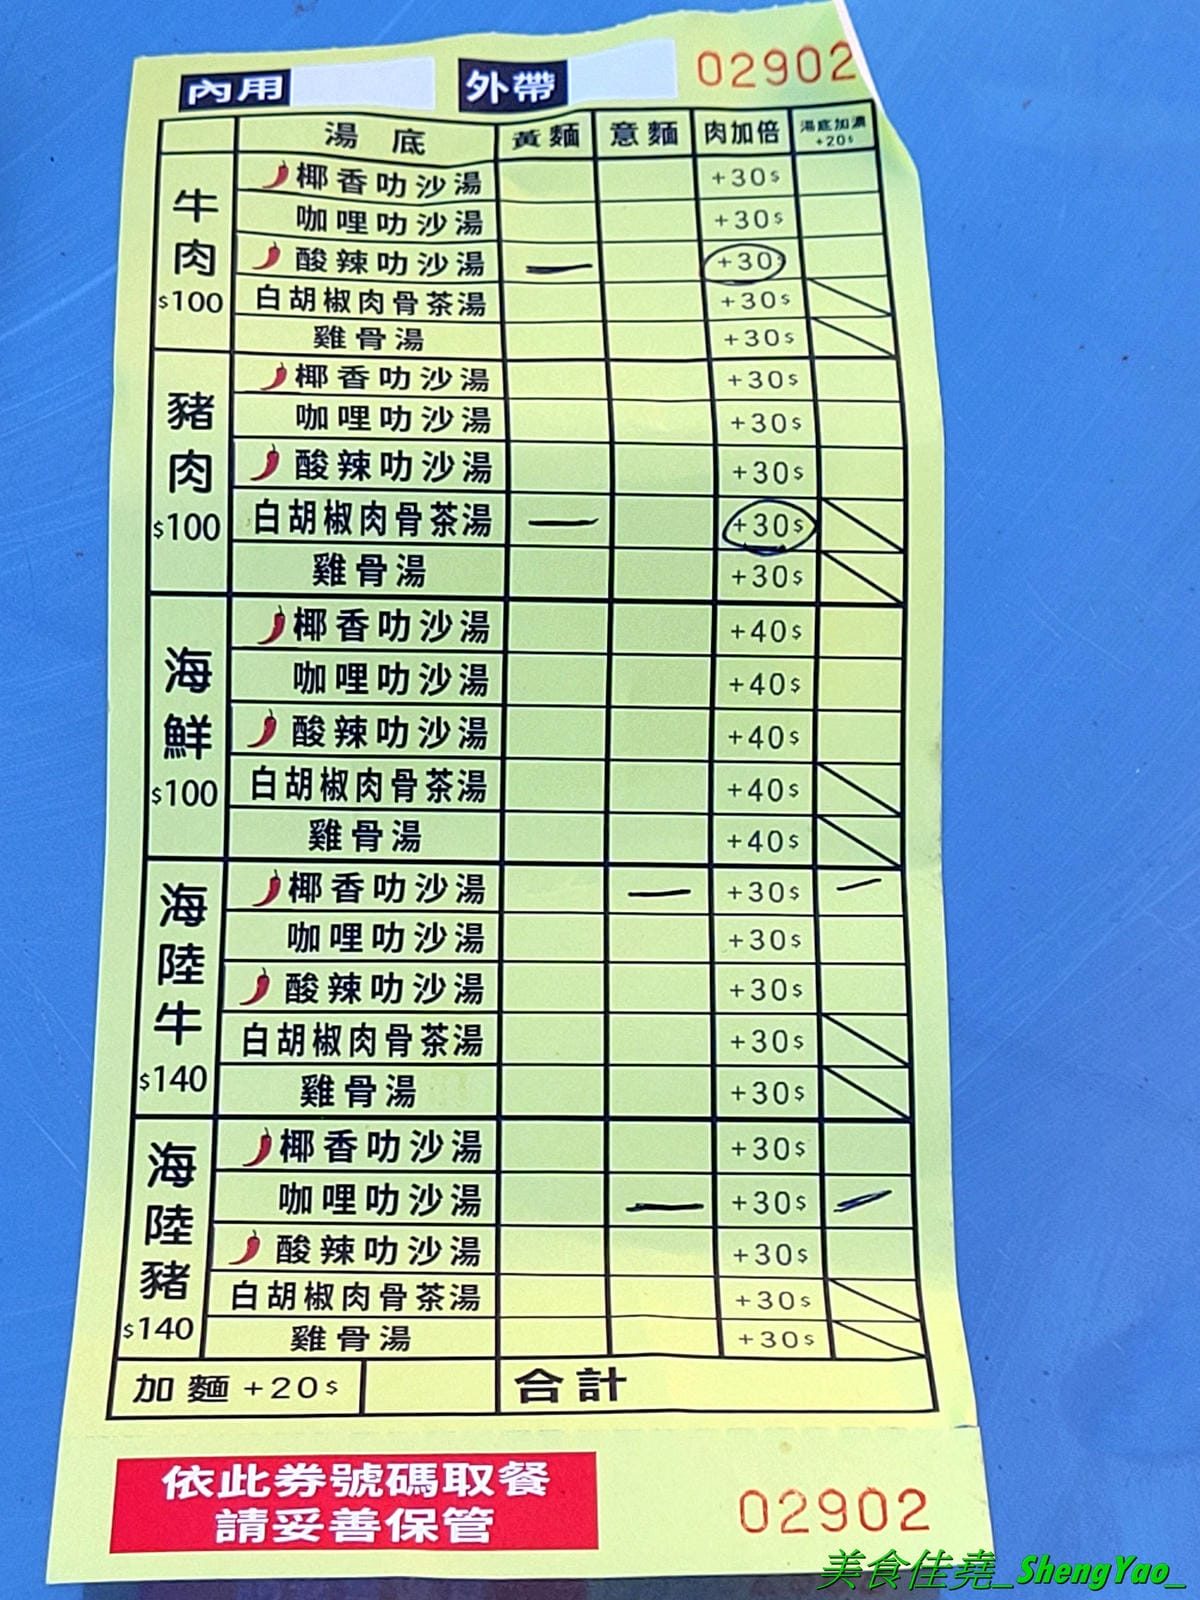 內用 外帶 02902
湯底 黃麵 意麵 肉加倍 湯底加濃 +20$
牛肉 $100
椰香叻沙湯 +30$
咖哩叻沙湯 +30$
酸辣叻沙湯 +30$
白胡椒肉骨茶湯 +30$
雞骨湯 +30$
豬肉 $100
椰香叻沙湯 +30$
咖哩叻沙湯 +30$
酸辣叻沙湯 +30$
白胡椒肉骨茶湯 +30$
雞骨湯 +30$
海鮮 $100
椰香叻沙湯 +40$
咖哩叻沙湯 +40$
酸辣叻沙湯 +40$
白胡椒肉骨茶湯 +40$
雞骨湯 +40$
海陸牛 $140
椰香叻沙湯 +30$
咖哩叻沙湯 +30$
酸辣叻沙湯 +30$
白胡椒肉骨茶湯 +30$
雞骨湯 +30$
海陸豬 $140
椰香叻沙湯 +30$
咖哩叻沙湯 +30$
酸辣叻沙湯 +30$
白胡椒肉骨茶湯 +30$
雞骨湯 +30$
加麵 +20$ 合計
依此券號碼取餐
請妥善保管
02902
美食佳堯_ShengYao_